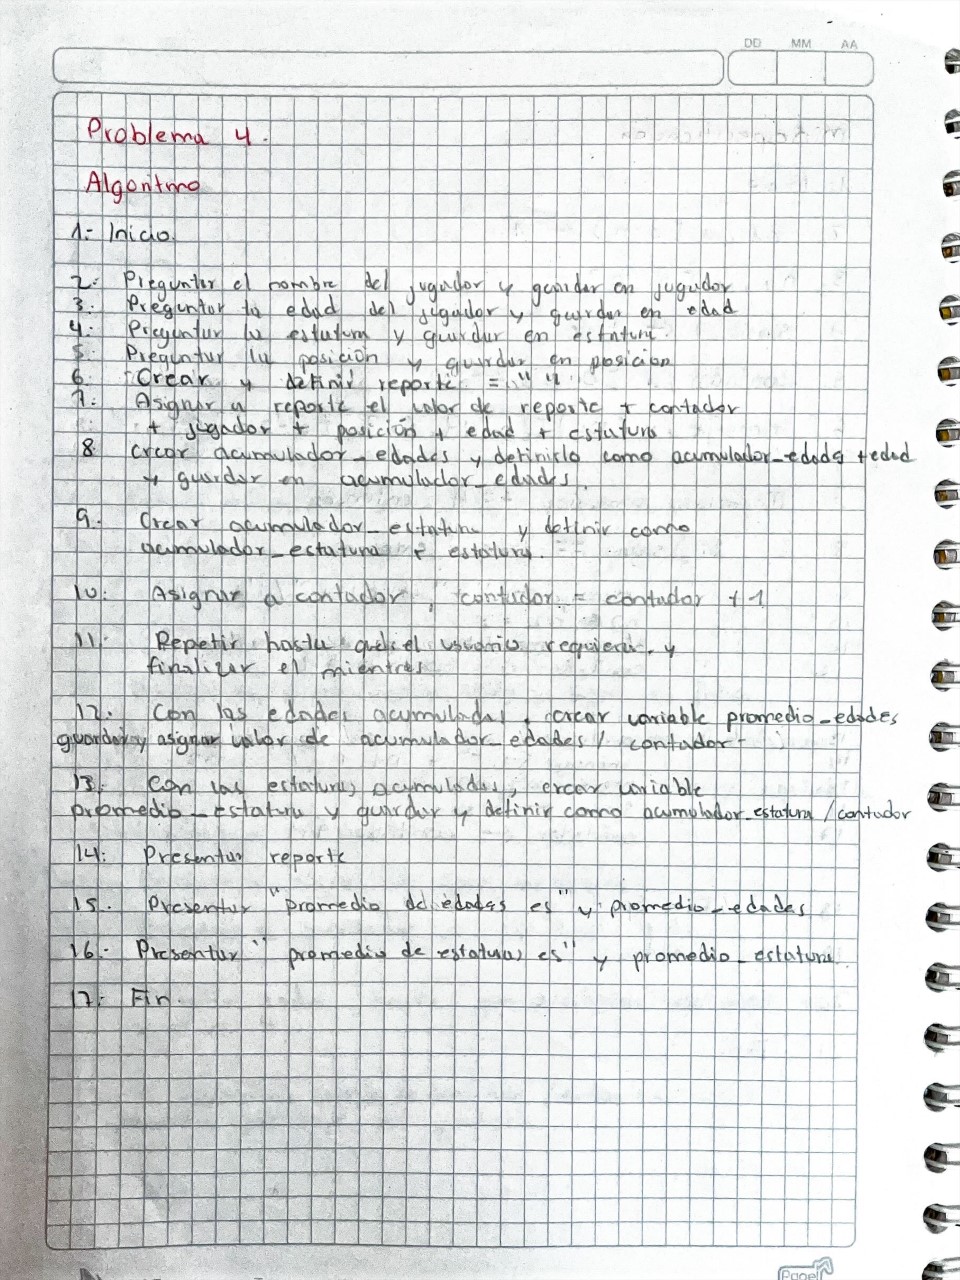 DD MM AA
Problema 4.
Algoritmo
1.- Inicio.
2.- Preguntar el nombre del jugador y guardar en jugador
3.- Preguntar la edad del jugador y guardar en edad
4.- Preguntar la estatura y guardar en estatura.
5.- Preguntar la posición y guardar en posicion
6.- Crear y definir reporte = " "
7.- Asignar a reporte el valor de reporte + contador
+ jugador + posición + edad + estatura
8. crear acumulador_edades y definirlo como acumulador_edads + edad
y guardar en acumulador_edades.
9.- Crear acumulador_estatura y definir como
acumulador_estatura + estatura.
10.- Asignar a contador, contador = contador + 1
11.- Repetir hasta que el usuario requiera. y
finalizar el mientras
12.- Con las edades acumuladas, crear variable promedio_edades
guardar y asignar valor de acumulador_edades / contador-
13.- Con las estaturas acumuladas, crear variable
promedio_estatura y guardar y definir como acumulador_estatura / contador
14.- Presentar reporte
15.- Presentar "promedio de edades es" y promedio_edades
16.- Presentar "promedio de estaturas es" y promedio_estatura.
17.- Fin.
Papel